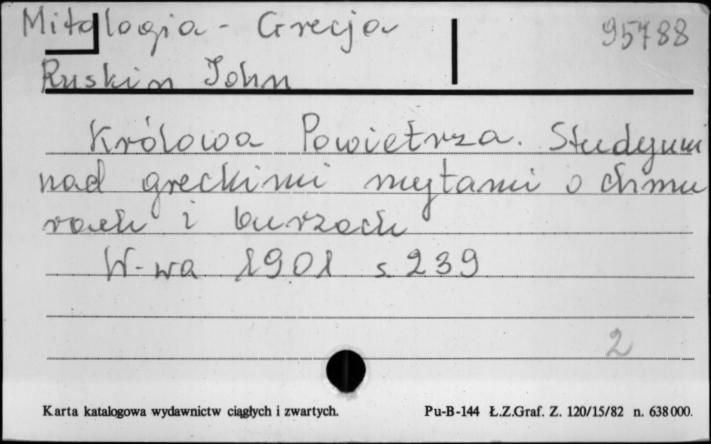 Mitologia - Grecja 95788
Ruskin John
Królowa Powietrza. Studyum
nad greckimi mytami o chmu
rach i burzach
W-wa 1901 s. 239
2
Karta katalogowa wydawnictw ciągłych i zwartych. Pu-B-144 Ł.Z.Graf. Z. 120/15/82 n. 638000.